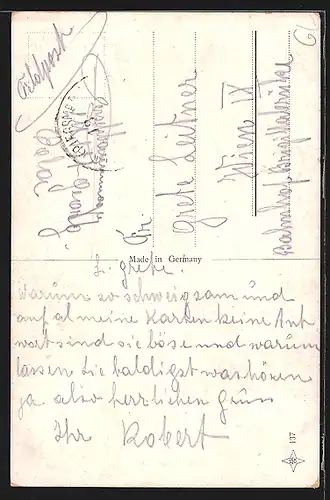 Feldpost
61
Pola
Frl.
Grete Leitner
Wien IX
Made in Germany
L. Grete.
Warum so schweigsam und
auf al meine Karten keine Ant
wort sind sie böse und warum
lassen Sie baldigst was hören
ja also herzlichen Grus
Ihr Robert
137